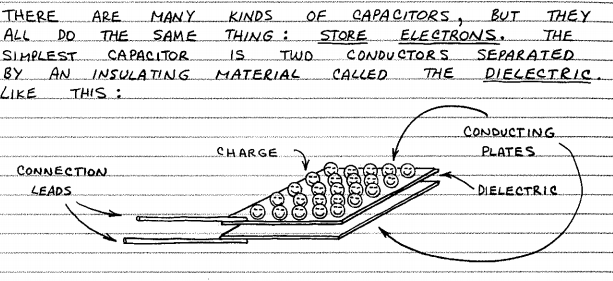 THERE ARE MANY KINDS OF CAPACITORS, BUT THEY
ALL DO THE SAME THING: STORE ELECTRONS. THE
SIMPLEST CAPACITOR IS TWO CONDUCTORS SEPARATED
BY AN INSULATING MATERIAL CALLED THE DIELECTRIC.
LIKE THIS:
CONDUCTING
PLATES
CHARGE
CONNECTION
LEADS
DIELECTRIC